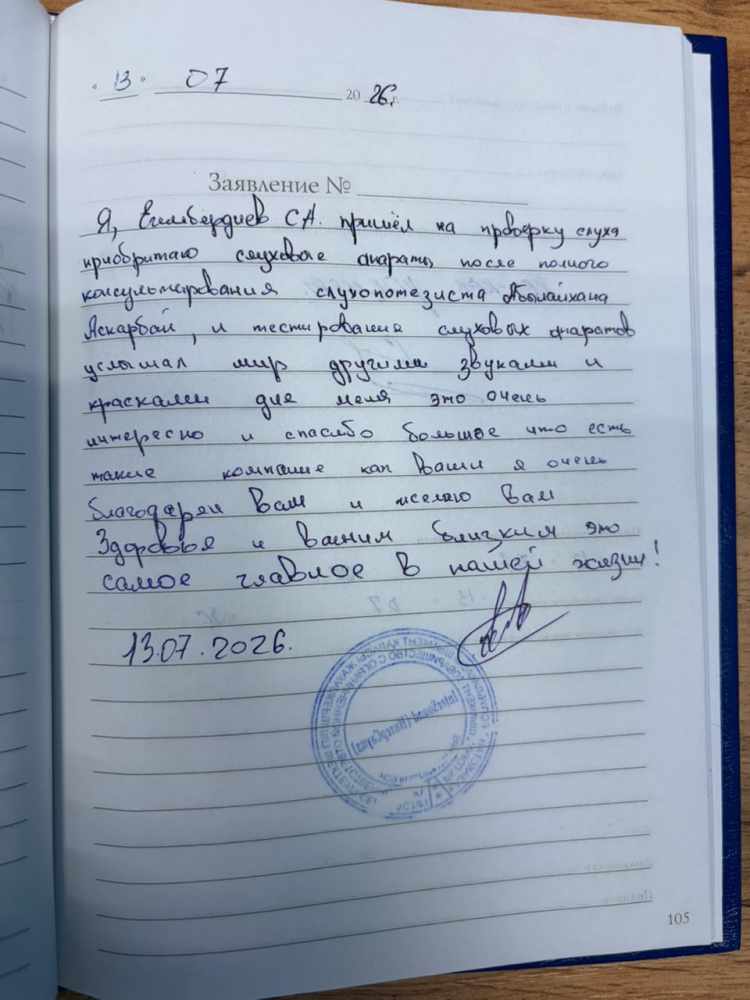 « 13 » 07 20 26 г.
Заявление №
Я, Егимбердиев С.А. пришёл на проверку слуха
приобритаю слуховые апараты, после полного
консультирования слухопотезиста Абылайхана
Аскарбай, и тестирования слуховых апаратов
услышал мир другими звуками и
красками для меня это очень
интересно и спасибо большое что есть
такие компание как Ваши я очень
благодарен Вам и желаю Вам
Здоровья и вашим близким это
самое главное в нашей жизни!
13.07.2026.
105